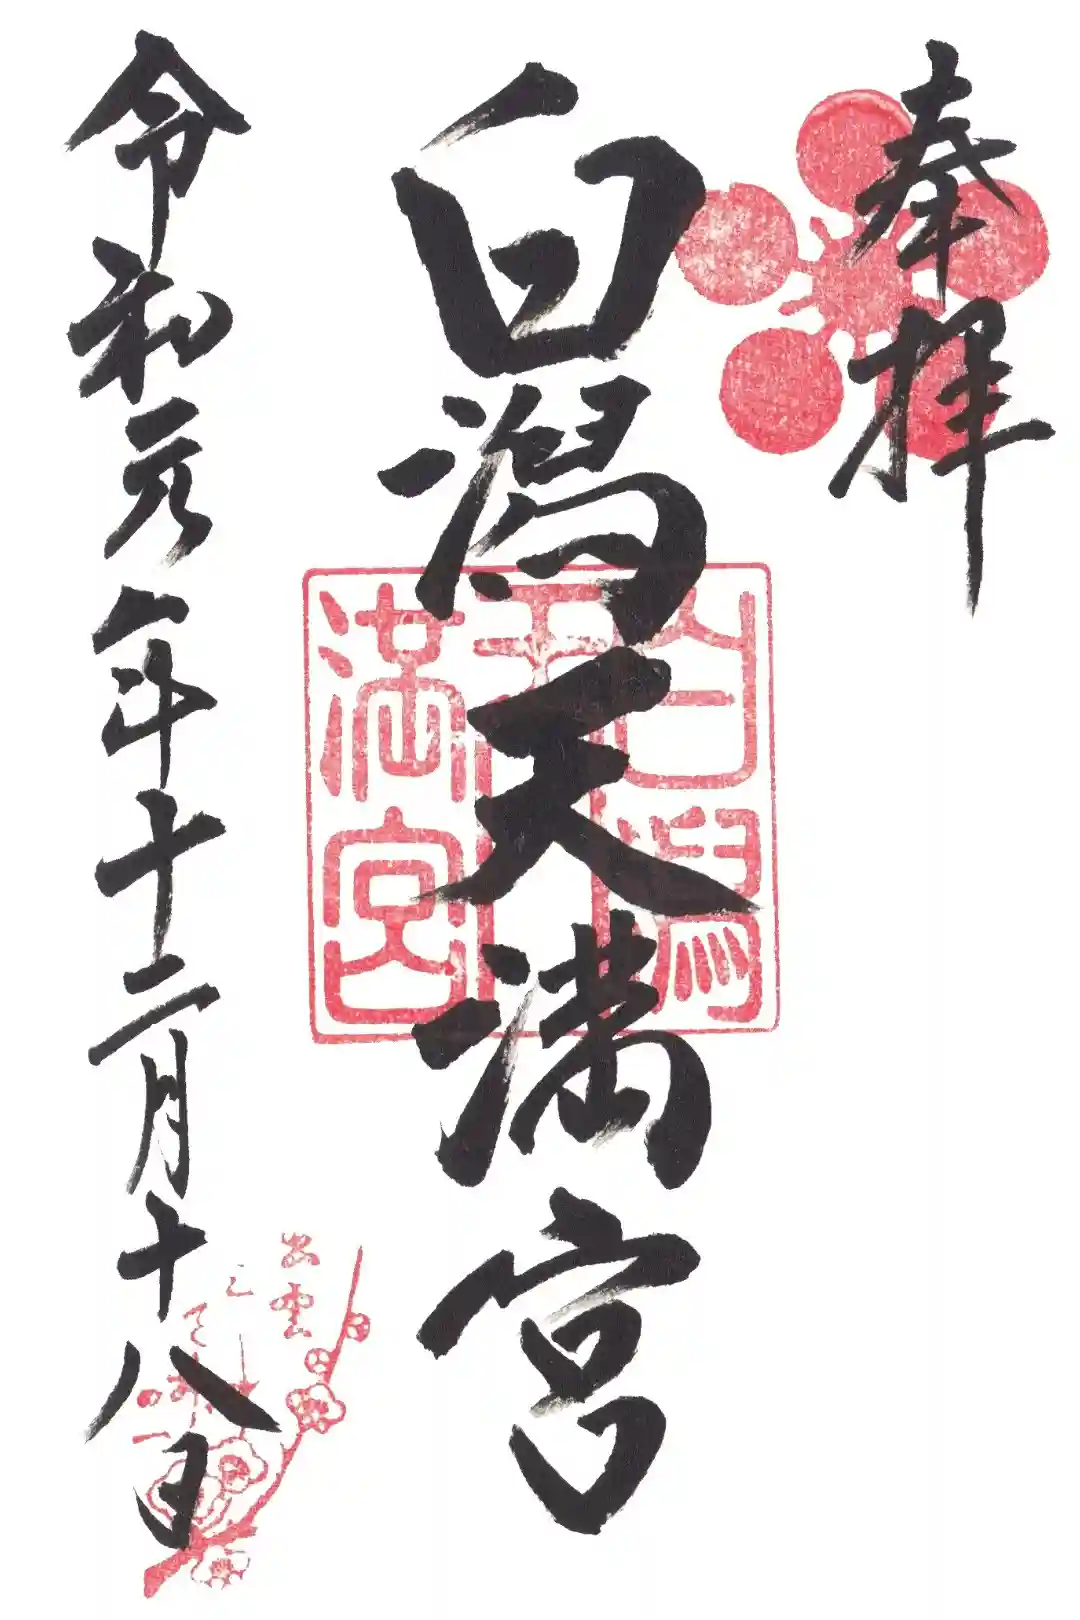 奉拝
白潟天満宮
白潟天満宮
令和元年十二月十八日
出雲